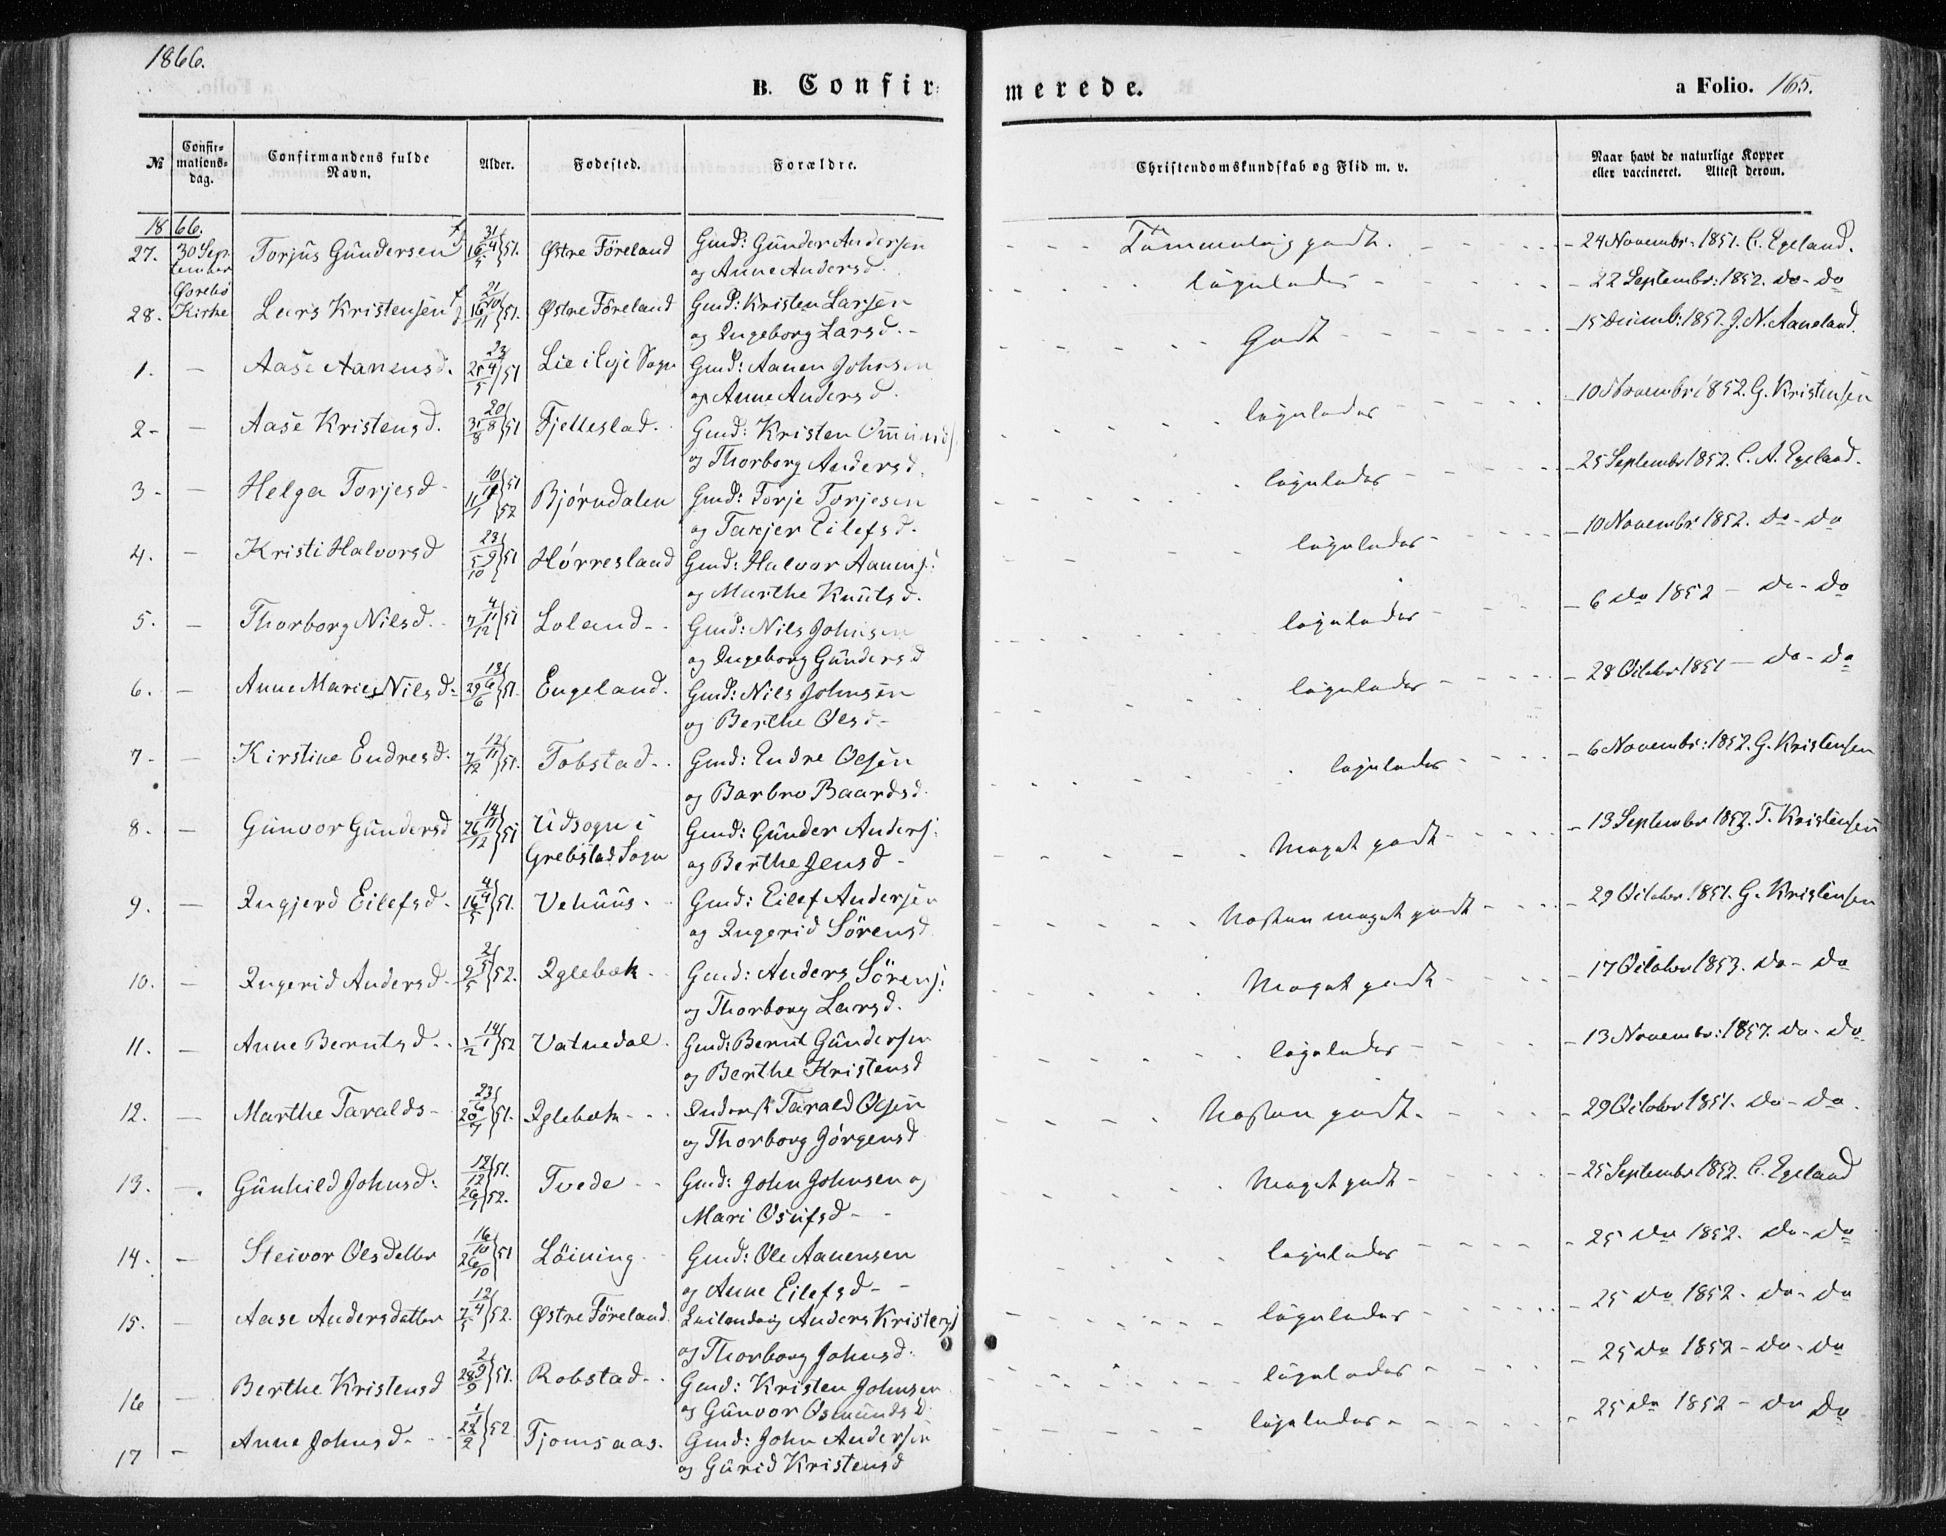 1866.
B. Confirmerede.
a Folio. 165.
№
Confir-
mations-
dag.
Confirmandens fulde
Navn.
Alder.
Fødested.
Forældre.
Christendomskundskab og Flid m. v.
Naar havt de naturlige Kopper
eller vaccineret. Attest derom.
1866.
27. 30 Sep- Torjüs Gündersen 31/4 16/5 51. Østre Föreland Gmd: Günder Andersen Godt. 24 Novembr: 1851. C. Egeland.
tember og Anne Andersd.
Øvrebø
28. Kirke Lars Kristensen 21/10 16/11 51. Østre Föreland Gmd: Kristen Larsen ligeledes 22 Septembr: 1852. do- do
og Ingeborg Larsd.
1. — Aase Aanensd. 23/4 25/5 51 Lie i Evje Sogn Gmd: Aanen Johnsen Godt 15 Decemb: 1857. J. N. Aaneland.
og Anne Andersd.
2- — Aase Kristensd. 20/8 31/8 51 Fjelleslad. Gmd: Kristen ligeledes 10 Novembr 1852. G. Kristensen
og Thorborg Andersd.
3- — Helga Torjesd- Bjørndalen Gmd: Torje Torjesen ligeledes 25 Septembr 1852. C. A. Egeland.
og Tarjer Eilefsd.
4. — Kristi Halvorsd 23/9 5/10 51 Hörresland Gmd: Halvor Aanens: ligeledes- 10 Novembr 1852. do- do
og Marthe Knütsd.
5. — Thorborg Nilsd. 4/11 7/12 51 Loland- Gmd: Nils Johnsen ligeledes 6 do 1852 — do- do
og Ingeborg Gündersd
6. — Anne Marie Nilsd- 13/6 29/6 51. Engeland. Gmd: Nils Johnsen ligeledes 28 October 1851 — do- do
og Berthe Olsd-
7- — Kirstine Endresd. 12/11 7/12 51. Tobstad- Gmd: Endre Olsen ligeledes 6 Novembr: 1852. G. Kristensen
og Barbro Baardsd.
8. — Günvor Gündersd 14/11 26/12 51 Udsogn i Gmd: Günder Anders: Meget godt 13 September 1852. T. Kristensen
Grebstad Sogn og Berthe Jensd-
9. — Ingjerd Eilefsd- 4/4 16/5 51. Vehüüs- Gmd: Eilef Andersen Næsten meget godt 29 October 1851. G. Kristensen
og Ingerid Sörensd
10. — Ingerid Andersd- 2/5 52. Iglebæk- Gmd: Anders Sörens: Meget godt 17 October 1853. do- do
og Thorborg Larsd.
11. — Anne Berntsd- 14/1 52 Vatnedal- Gmd: Bernt Gündersen ligeledes 13 Novembr: 1857. do- do.
og Berthe Kristensd
12. — Marthe Taralds- 23/6 20/7 51. Iglebæk- Inderst Tarald Olsen Næsten godt. 29 October 1851. do- do.
og Thorborg Jörgensd
13. — Günhild Johnsd: Tvede- Gmd: John Johnsen og Meget godt- 25 Septembr 1852. C. Egeland
Mari Osufsd-
14. — Steivor Olsdatter 16/10 26/10 51 Löining Gmd: Ole Aanensen ligeledes 25 do 1852. do- do
og Anne Eilefsd-
15. — Aase Andersdatter 12/4 7/5 52. Østre Föreland. Leilending Anders Kristens: ligeledes 25 do 1852. do- do
og Thorborg Johnsd.
16 — Berthe Kristensd 2/9 28/9 51. Robstad- Gmd: Kristen Johnsen ligeledes 25 do 1852- do- do
og Günvor Osmundsd-
17 — Anne Johnsd- 1/1 22/2 52 Tjomsaas. Gmd: John Andersen ligeledes- 25 do 1852- do do
og Gürid Kristensd